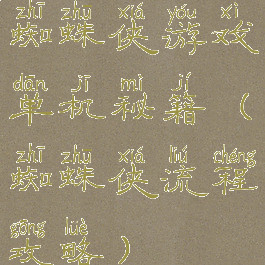 zhī zhū xiá yóu xì
蜘蛛侠游戏
dān jī mì jí
单机秘籍（
zhī zhū xiá liú chéng
蜘蛛侠流程
gōng lüè
攻略）